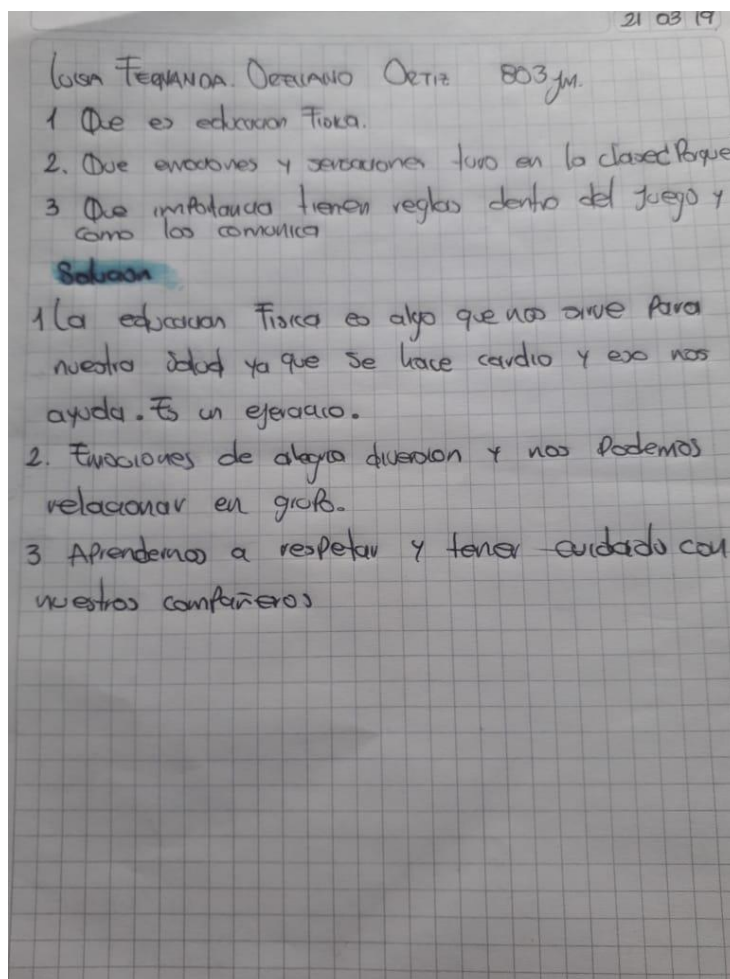 21 03 19
Luisa Fernanda. Orellano Ortiz 803 jm.
1 Que es educacion Fisica.
2. Que emociones y sensaciones tuvo en la clase Porque
3 Que importancia tienen reglas dentro del Juego y
como las comunica
Solucion
1 La educacion Fisica es algo que nos sirve Para
nuestra salud ya que se hace cardio y eso nos
ayuda. Es un ejercicio.
2. Emociones de alegria diversion y nos Podemos
relacionar en grupo.
3 Aprendemos a respetar y tener cuidado con
nuestros compañeros